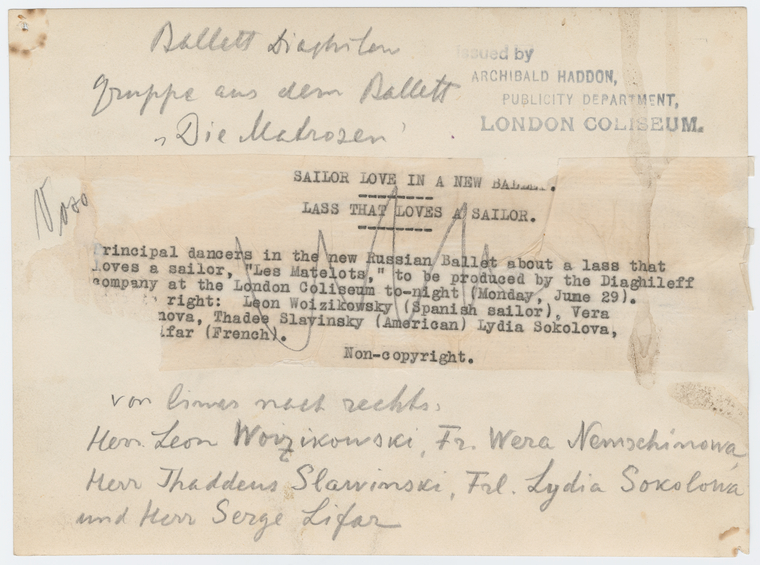 Ballett Diaghilew
Gruppe aus dem Ballett
„Die Matrosen'
issued by
ARCHIBALD HADDON,
PUBLICITY DEPARTMENT,
LONDON COLISEUM.
SAILOR LOVE IN A NEW BALLET.
LASS THAT LOVES A SAILOR.
Principal dancers in the new Russian Ballet about a lass that
loves a sailor, "Les Matelots," to be produced by the Diaghileff
company at the London Coliseum to-night (Monday, June 29).
right: Leon Woizikowsky (Spanish sailor), Vera
nova, Thadee Slavinsky (American) Lydia Sokolova,
ifar (French).
Non-copyright.
von links nach rechts:
Herr Leon Woizikowski, Fr. Wera Nemschinowa
Herr Thaddeus Slawinski, Frl. Lydia Sokolowa
und Herr Serge Lifar